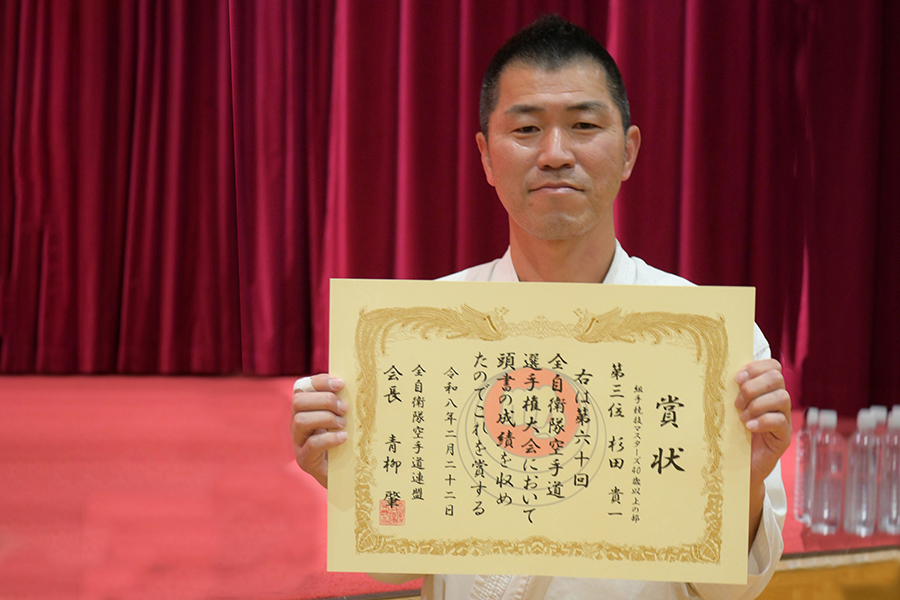 賞状
組手競技マスターズ40歳以上の部
第三位 杉田 貴一
右は第六十回
全自衛隊空手道
選手権大会において
頭書の成績を収め
たのでこれを賞する
令和八年二月二十二日
全自衛隊空手道連盟
会長 青柳 肇